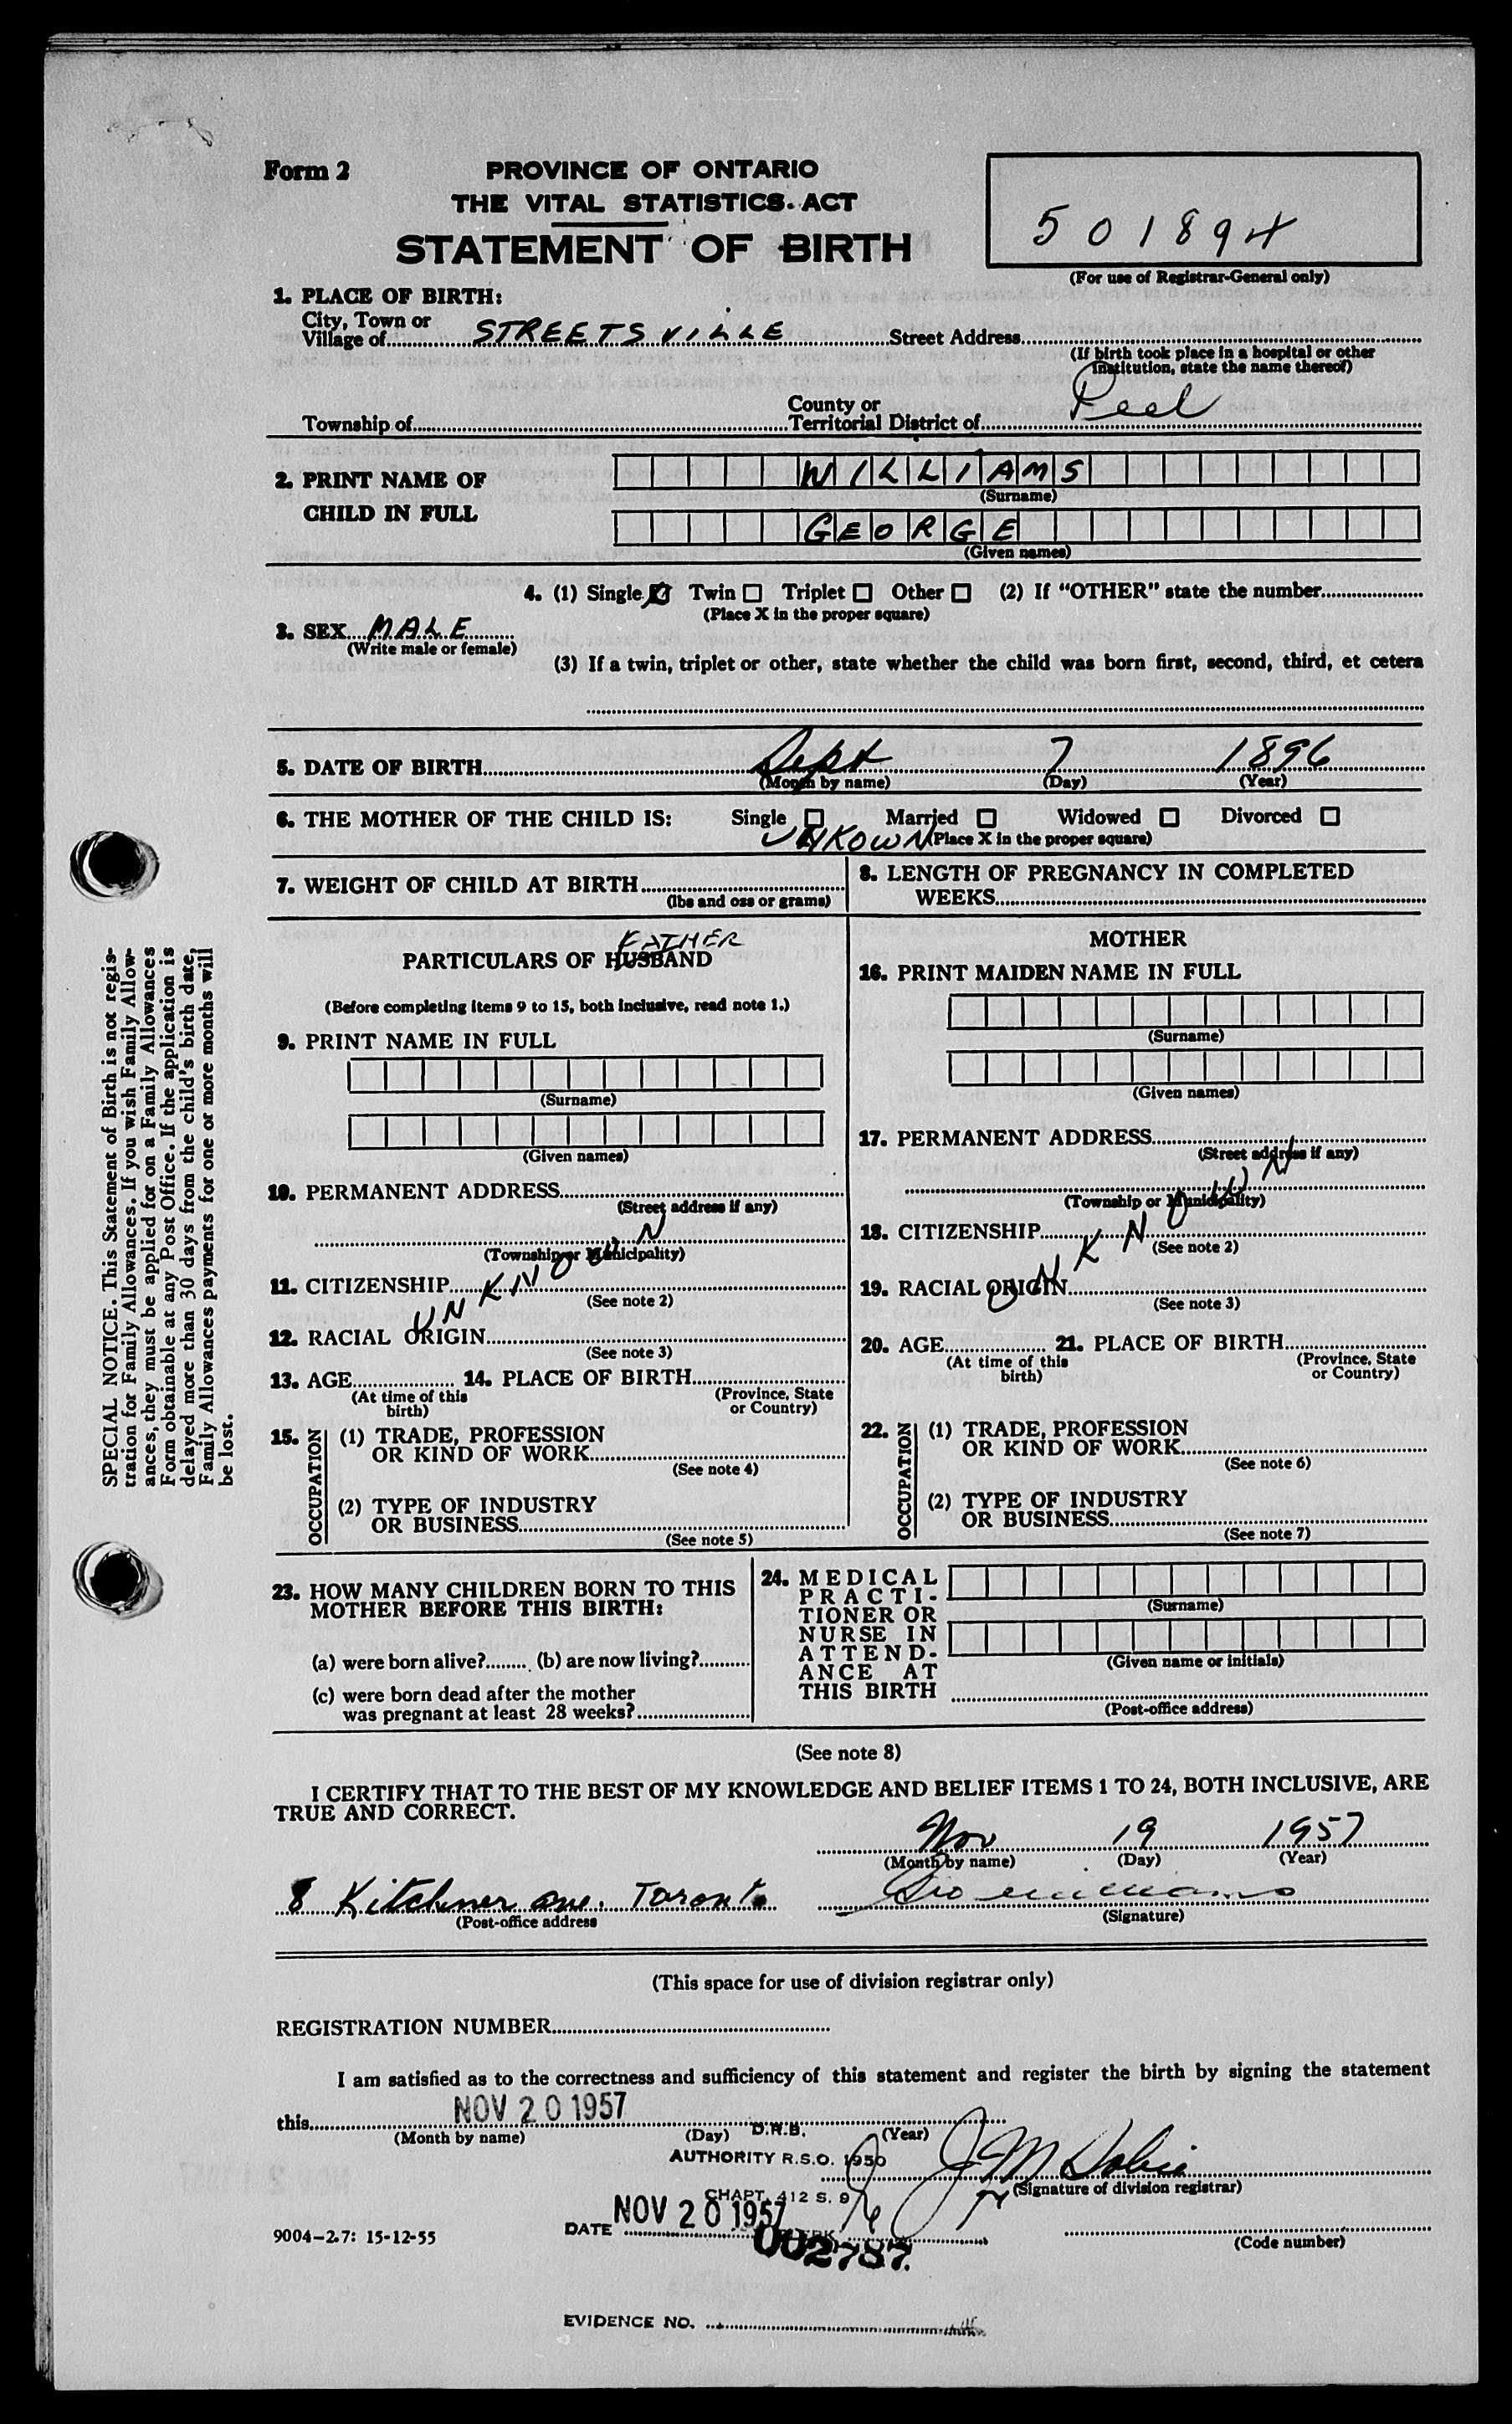 Form 2
PROVINCE OF ONTARIO
THE VITAL STATISTICS ACT
STATEMENT OF BIRTH
501894
(For use of Registrar-General only)
1. PLACE OF BIRTH:
City, Town or
Village of STREETSVILLE Street Address
(If birth took place in a hospital or other
institution, state the name thereof)
Township of County or
Territorial District of Peel
2. PRINT NAME OF
CHILD IN FULL
WILLIAMS
(Surname)
GEORGE
(Given names)
4. (1) Single Twin Triplet Other (2) If "OTHER" state the number
(Place X in the proper square)
3. SEX MALE
(Write male or female)
(3) If a twin, triplet or other, state whether the child was born first, second, third, et cetera
5. DATE OF BIRTH Sept 7 1896
(Month by name) (Day) (Year)
6. THE MOTHER OF THE CHILD IS: Single Married Widowed Divorced
UNKOWN (Place X in the proper square)
7. WEIGHT OF CHILD AT BIRTH
(lbs and ozs or grams)
8. LENGTH OF PREGNANCY IN COMPLETED
WEEKS
FATHER
PARTICULARS OF HUSBAND
(Before completing items 9 to 15, both inclusive, read note 1.)
9. PRINT NAME IN FULL
(Surname)
(Given names)
10. PERMANENT ADDRESS
(Street address if any)
(Township or Municipality)
11. CITIZENSHIP
(See note 2)
12. RACIAL ORIGIN
(See note 3)
13. AGE 14. PLACE OF BIRTH
(At time of this
birth)
(Province, State
or Country)
15. OCCUPATION
(1) TRADE, PROFESSION
OR KIND OF WORK
(See note 4)
(2) TYPE OF INDUSTRY
OR BUSINESS
(See note 5)
MOTHER
16. PRINT MAIDEN NAME IN FULL
(Surname)
(Given names)
17. PERMANENT ADDRESS
(Street address if any)
(Township or Municipality)
UNKNOWN
18. CITIZENSHIP
(See note 2)
19. RACIAL ORIGIN
(See note 3)
20. AGE 21. PLACE OF BIRTH
(At time of this
birth)
(Province, State
or Country)
22. OCCUPATION
(1) TRADE, PROFESSION
OR KIND OF WORK
(See note 6)
(2) TYPE OF INDUSTRY
OR BUSINESS
(See note 7)
23. HOW MANY CHILDREN BORN TO THIS
MOTHER BEFORE THIS BIRTH:
(a) were born alive? (b) are now living?
(c) were born dead after the mother
was pregnant at least 28 weeks?
24. MEDICAL
PRACTI-
TIONER OR
NURSE IN
ATTEND-
ANCE AT
THIS BIRTH
(Surname)
(Given name or initials)
(Post-office address)
(See note 8)
I CERTIFY THAT TO THE BEST OF MY KNOWLEDGE AND BELIEF ITEMS 1 TO 24, BOTH INCLUSIVE, ARE
TRUE AND CORRECT.
Nov 19 1957
(Month by name) (Day) (Year)
8 Kitchner ave. Toronto Geo Williams
(Post-office address (Signature)
(This space for use of division registrar only)
REGISTRATION NUMBER
I am satisfied as to the correctness and sufficiency of this statement and register the birth by signing the statement
this NOV 20 1957
(Month by name) (Day) (Year)
D.R.B.
AUTHORITY R.S.O. 1950
CHAPT. 412 S. 9
(Signature of division registrar)
DATE NOV 20 1957
002787
9004-2.7: 15-12-55
(Code number)
EVIDENCE NO.
SPECIAL NOTICE. This Statement of Birth is not regis-
tration for Family Allowances. If you wish Family Allow-
ances, they must be applied for on a Family Allowances
Form obtainable at any Post Office. If the application is
delayed more than 30 days from the child's birth date,
Family Allowances payments for one or more months will
be lost.